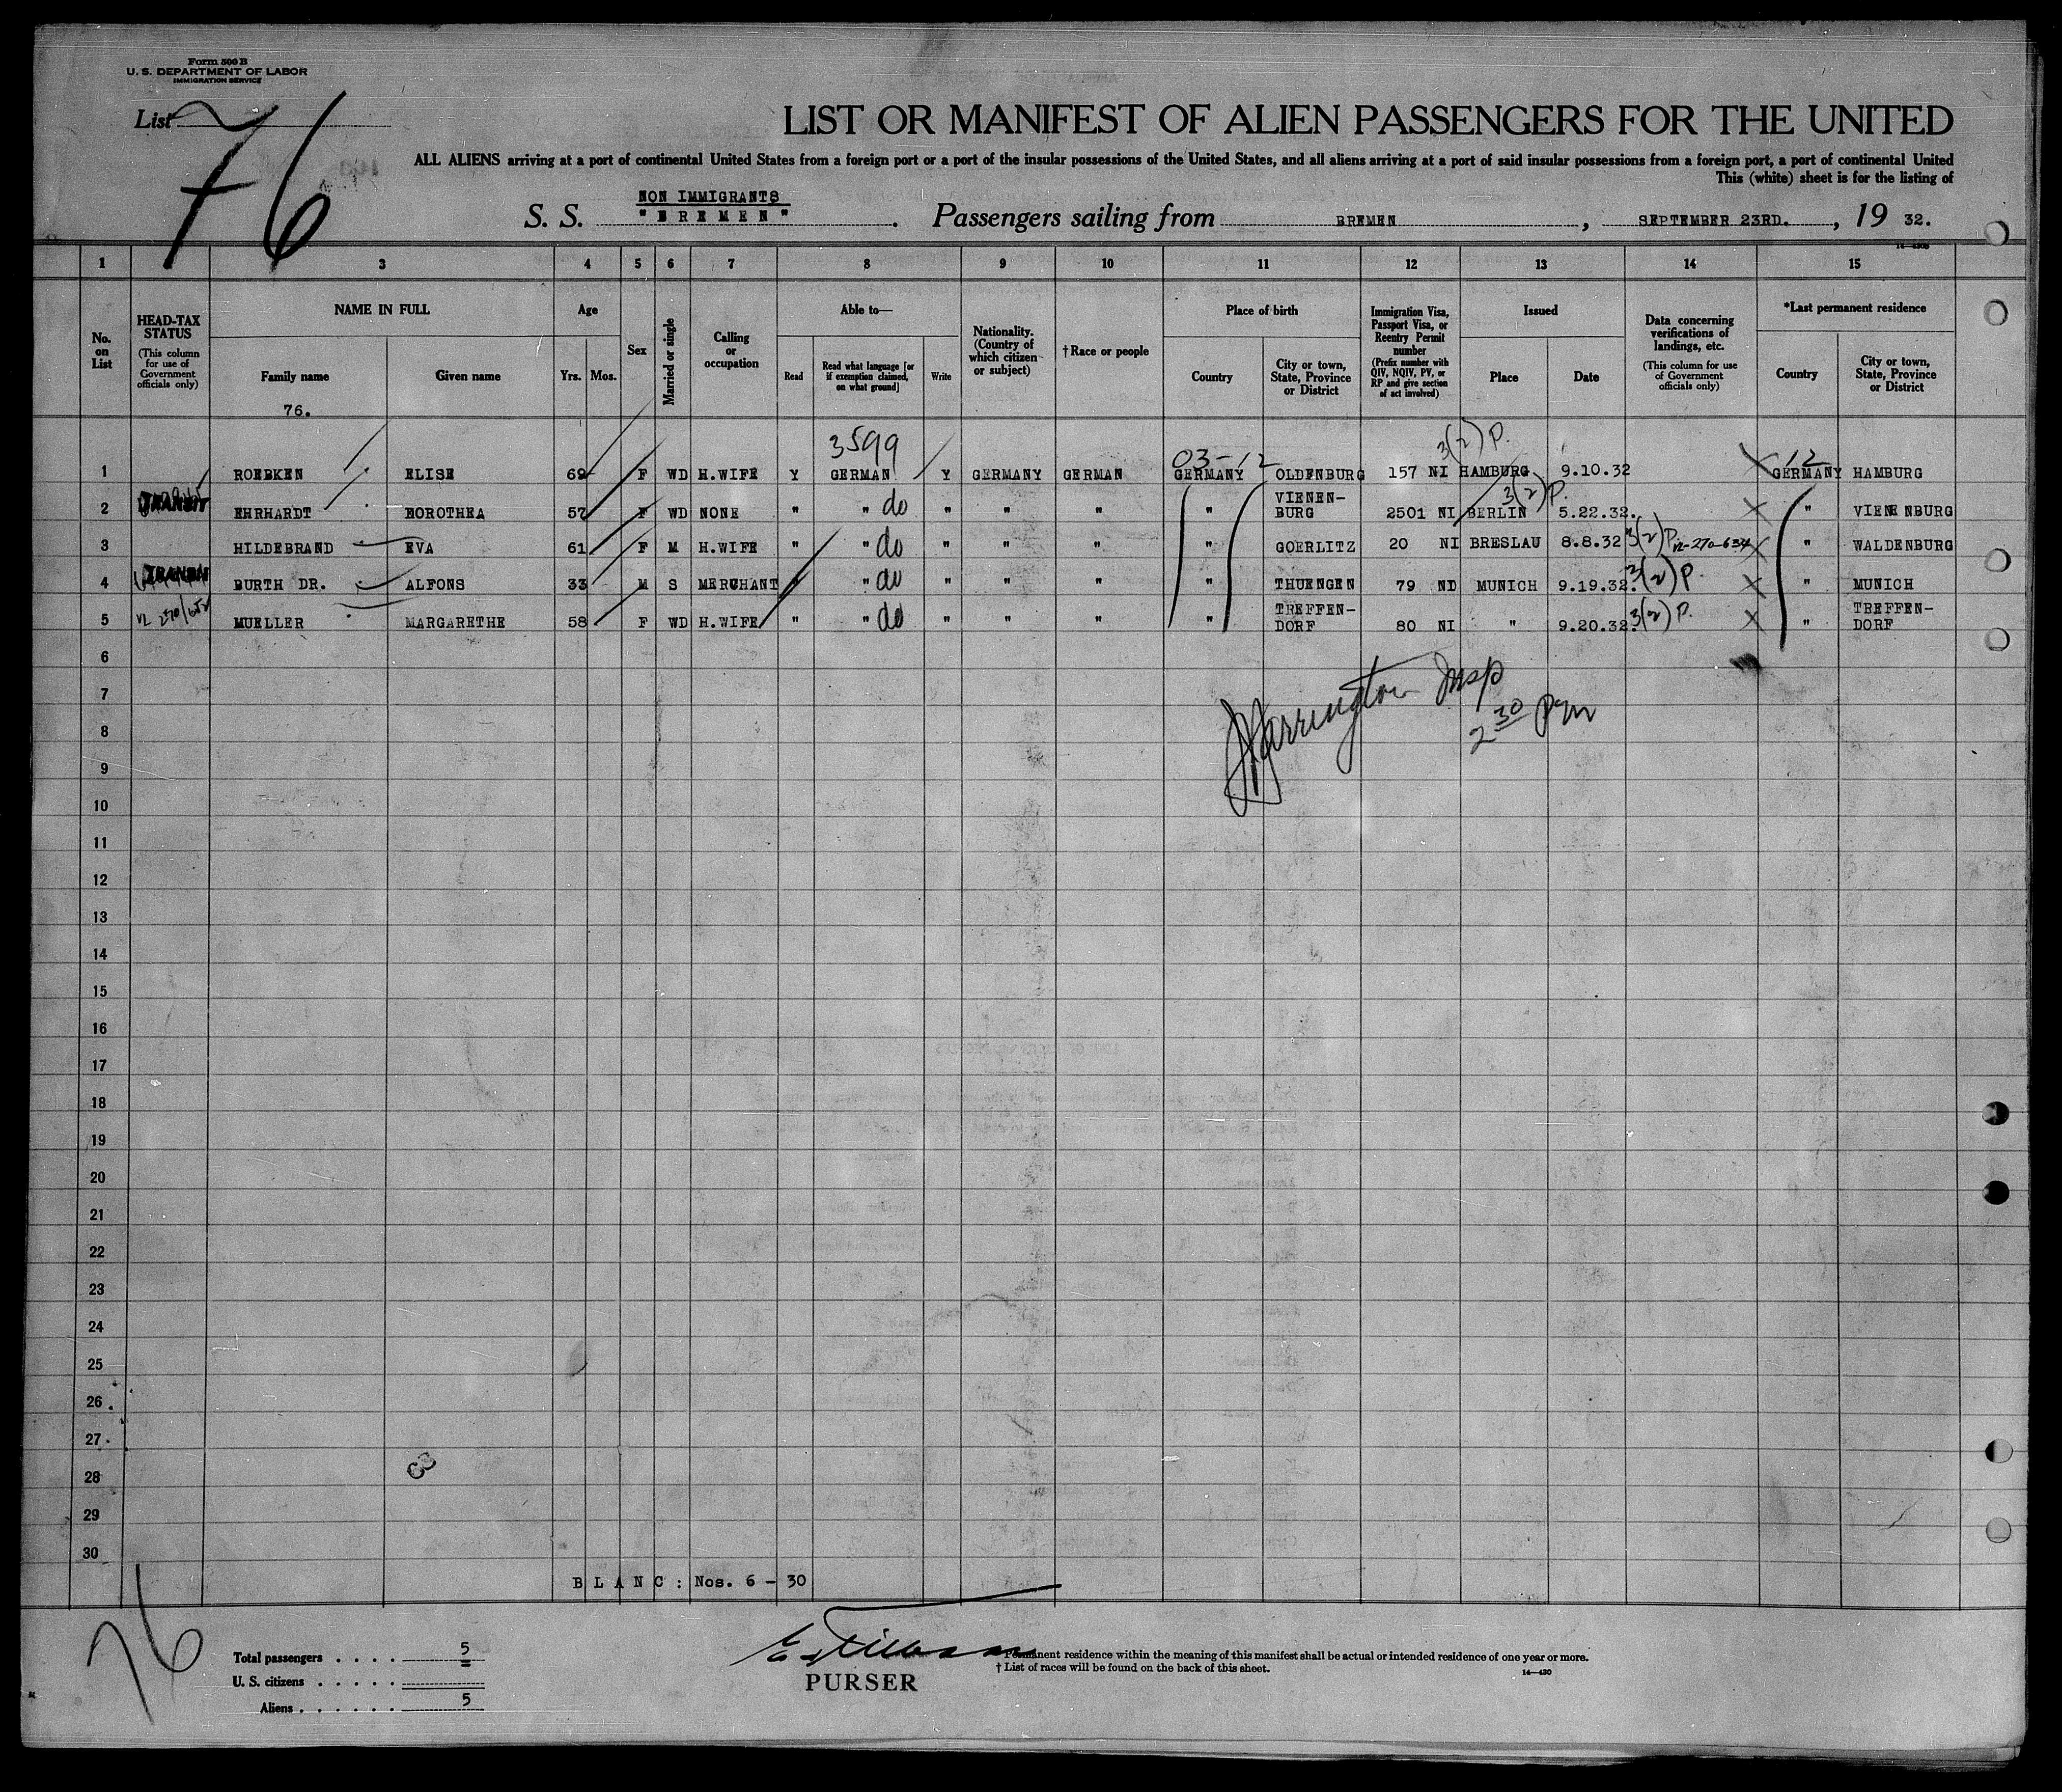 Form 500 B
U. S. DEPARTMENT OF LABOR
IMMIGRATION SERVICE
List 76
LIST OR MANIFEST OF ALIEN PASSENGERS FOR THE UNITED
ALL ALIENS arriving at a port of continental United States from a foreign port or a port of the insular possessions of the United States, and all aliens arriving at a port of said insular possessions from a foreign port, a port of continental United
This (white) sheet is for the listing of
NON IMMIGRANTS
S. S. "BREMEN". Passengers sailing from BREMEN, SEPTEMBER 23RD., 19 32.
1 3 4 5 6 7 8 9 10 11 12 13 14 15
No. on List
HEAD-TAX STATUS
(This column for use of Government officials only)
NAME IN FULL
Family name
Given name
76.
Age
Yrs. Mos.
Sex
Married or single
Calling or occupation
Able to—
Read
Read what language [or if exemption claimed, on what ground]
Write
Nationality. (Country of which citizen or subject)
†Race or people
Place of birth
Country
City or town, State, Province or District
Immigration Visa, Passport Visa, or Reentry Permit number
(Prefix number with QIV, NQIV, PV, or RP and give section of act involved)
Issued
Place
Date
Data concerning verifications of landings, etc.
(This column for use of Government officials only)
*Last permanent residence
Country
City or town, State, Province or District
3599 03-12 3(2) P. 12
1 ROEBKEN ELISE 69 F WD H.WIFE Y GERMAN Y GERMANY GERMAN GERMANY OLDENBURG 157 NI HAMBURG 9.10.32 X GERMANY HAMBURG
2 TRANSIT EHRHARDT DOROTHEA 57 F WD NONE " " do " " " " VIENEN-BURG 2501 NI BERLIN 3(2) P. 5.22.32. X " VIENENBURG
3 HILDEBRAND EVA 61 F M H.WIFE " " do " " " " GOERLITZ 20 NI BRESLAU 8.8.32 3(2) P. 12-270-634 X " WALDENBURG
4 TRANSIT BURTH DR. ALFONS 33 M S MERCHANT " " do " " " " THUENGEN 79 ND MUNICH 9.19.32. 3(2) P. X " MUNICH
5 MUELLER MARGARETHE 58 F WD H.WIFE " " do " " " " TREFFEN-DORF 80 NI " 9.20.32. 3(2) P. X " TREFFEN-DORF
6
Harrington Insp
7
2 30 pm
8
9
10
11
12
13
14
15
16
17
18
19
20
21
22
23
24
25
26
27
28
29
30
BLANC: Nos. 6 - 30
76
Total passengers 5
U. S. citizens
Aliens 5
PURSER
Permanent residence within the meaning of this manifest shall be actual or intended residence of one year or more.
† List of races will be found on the back of this sheet.
14—430